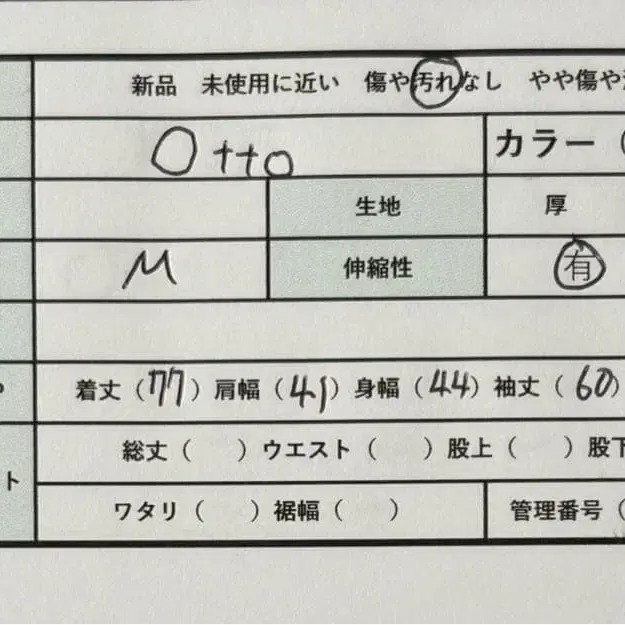 新品 未使用に近い 傷や汚れなし やや傷や
Otto カラー（
生地 厚
M 伸縮性 有
着丈（77）肩幅（41）身幅（44）袖丈（60）
総丈（ ）ウエスト（ ）股上（ ）股下
ト
ワタリ（ ）裾幅（ ） 管理番号（